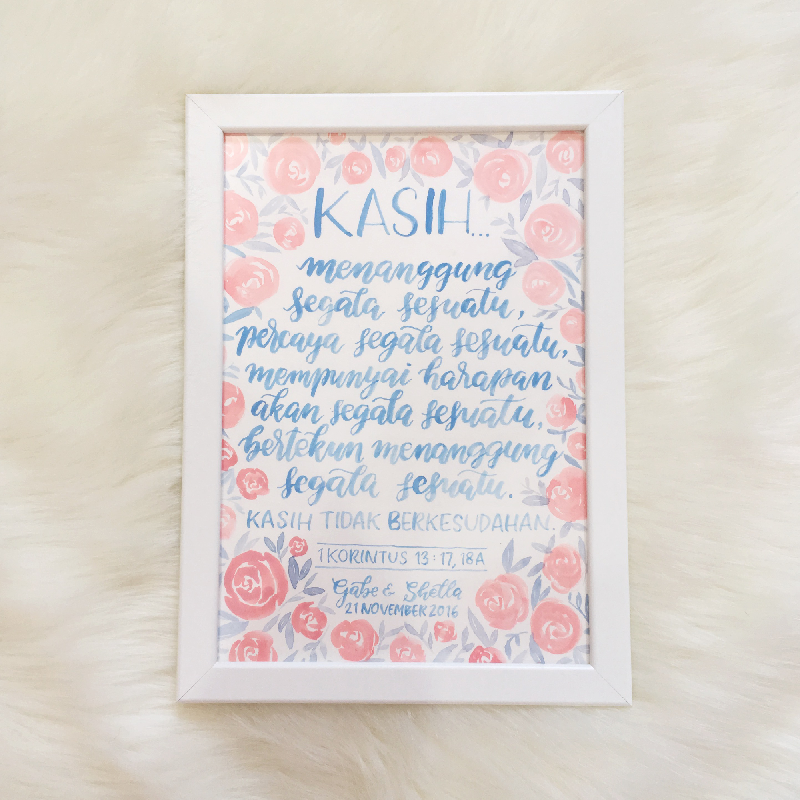 KASIH...
menanggung
segala sesuatu,
percaya segala sesuatu,
mempunyai harapan
akan segala sesuatu,
bertekun menanggung
segala sesuatu.
KASIH TIDAK BERKESUDAHAN.
1 KORINTUS 13:17, 18A
Gabe & Shella
21 NOVEMBER 2016